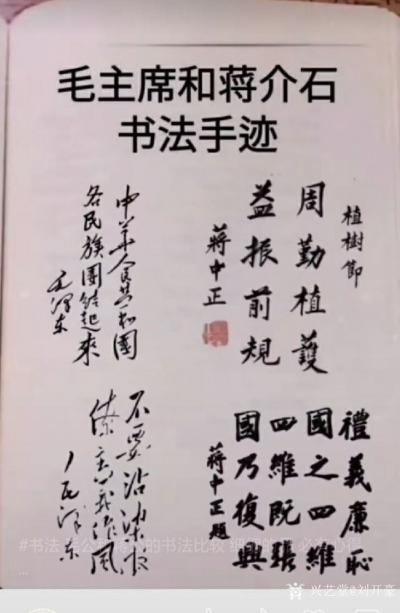 毛主席和蒋介石
书法手迹
植樹節
周勤植護
益振前規
蔣中正
中华人民共和國
各民族團结起來
毛泽东
禮義廉恥
國之四維
四維既張
國乃復興
蔣中正題
不要沾染官
僚主义作風
毛泽东
#书法 的书法比较
兴艺堂@刘开豪